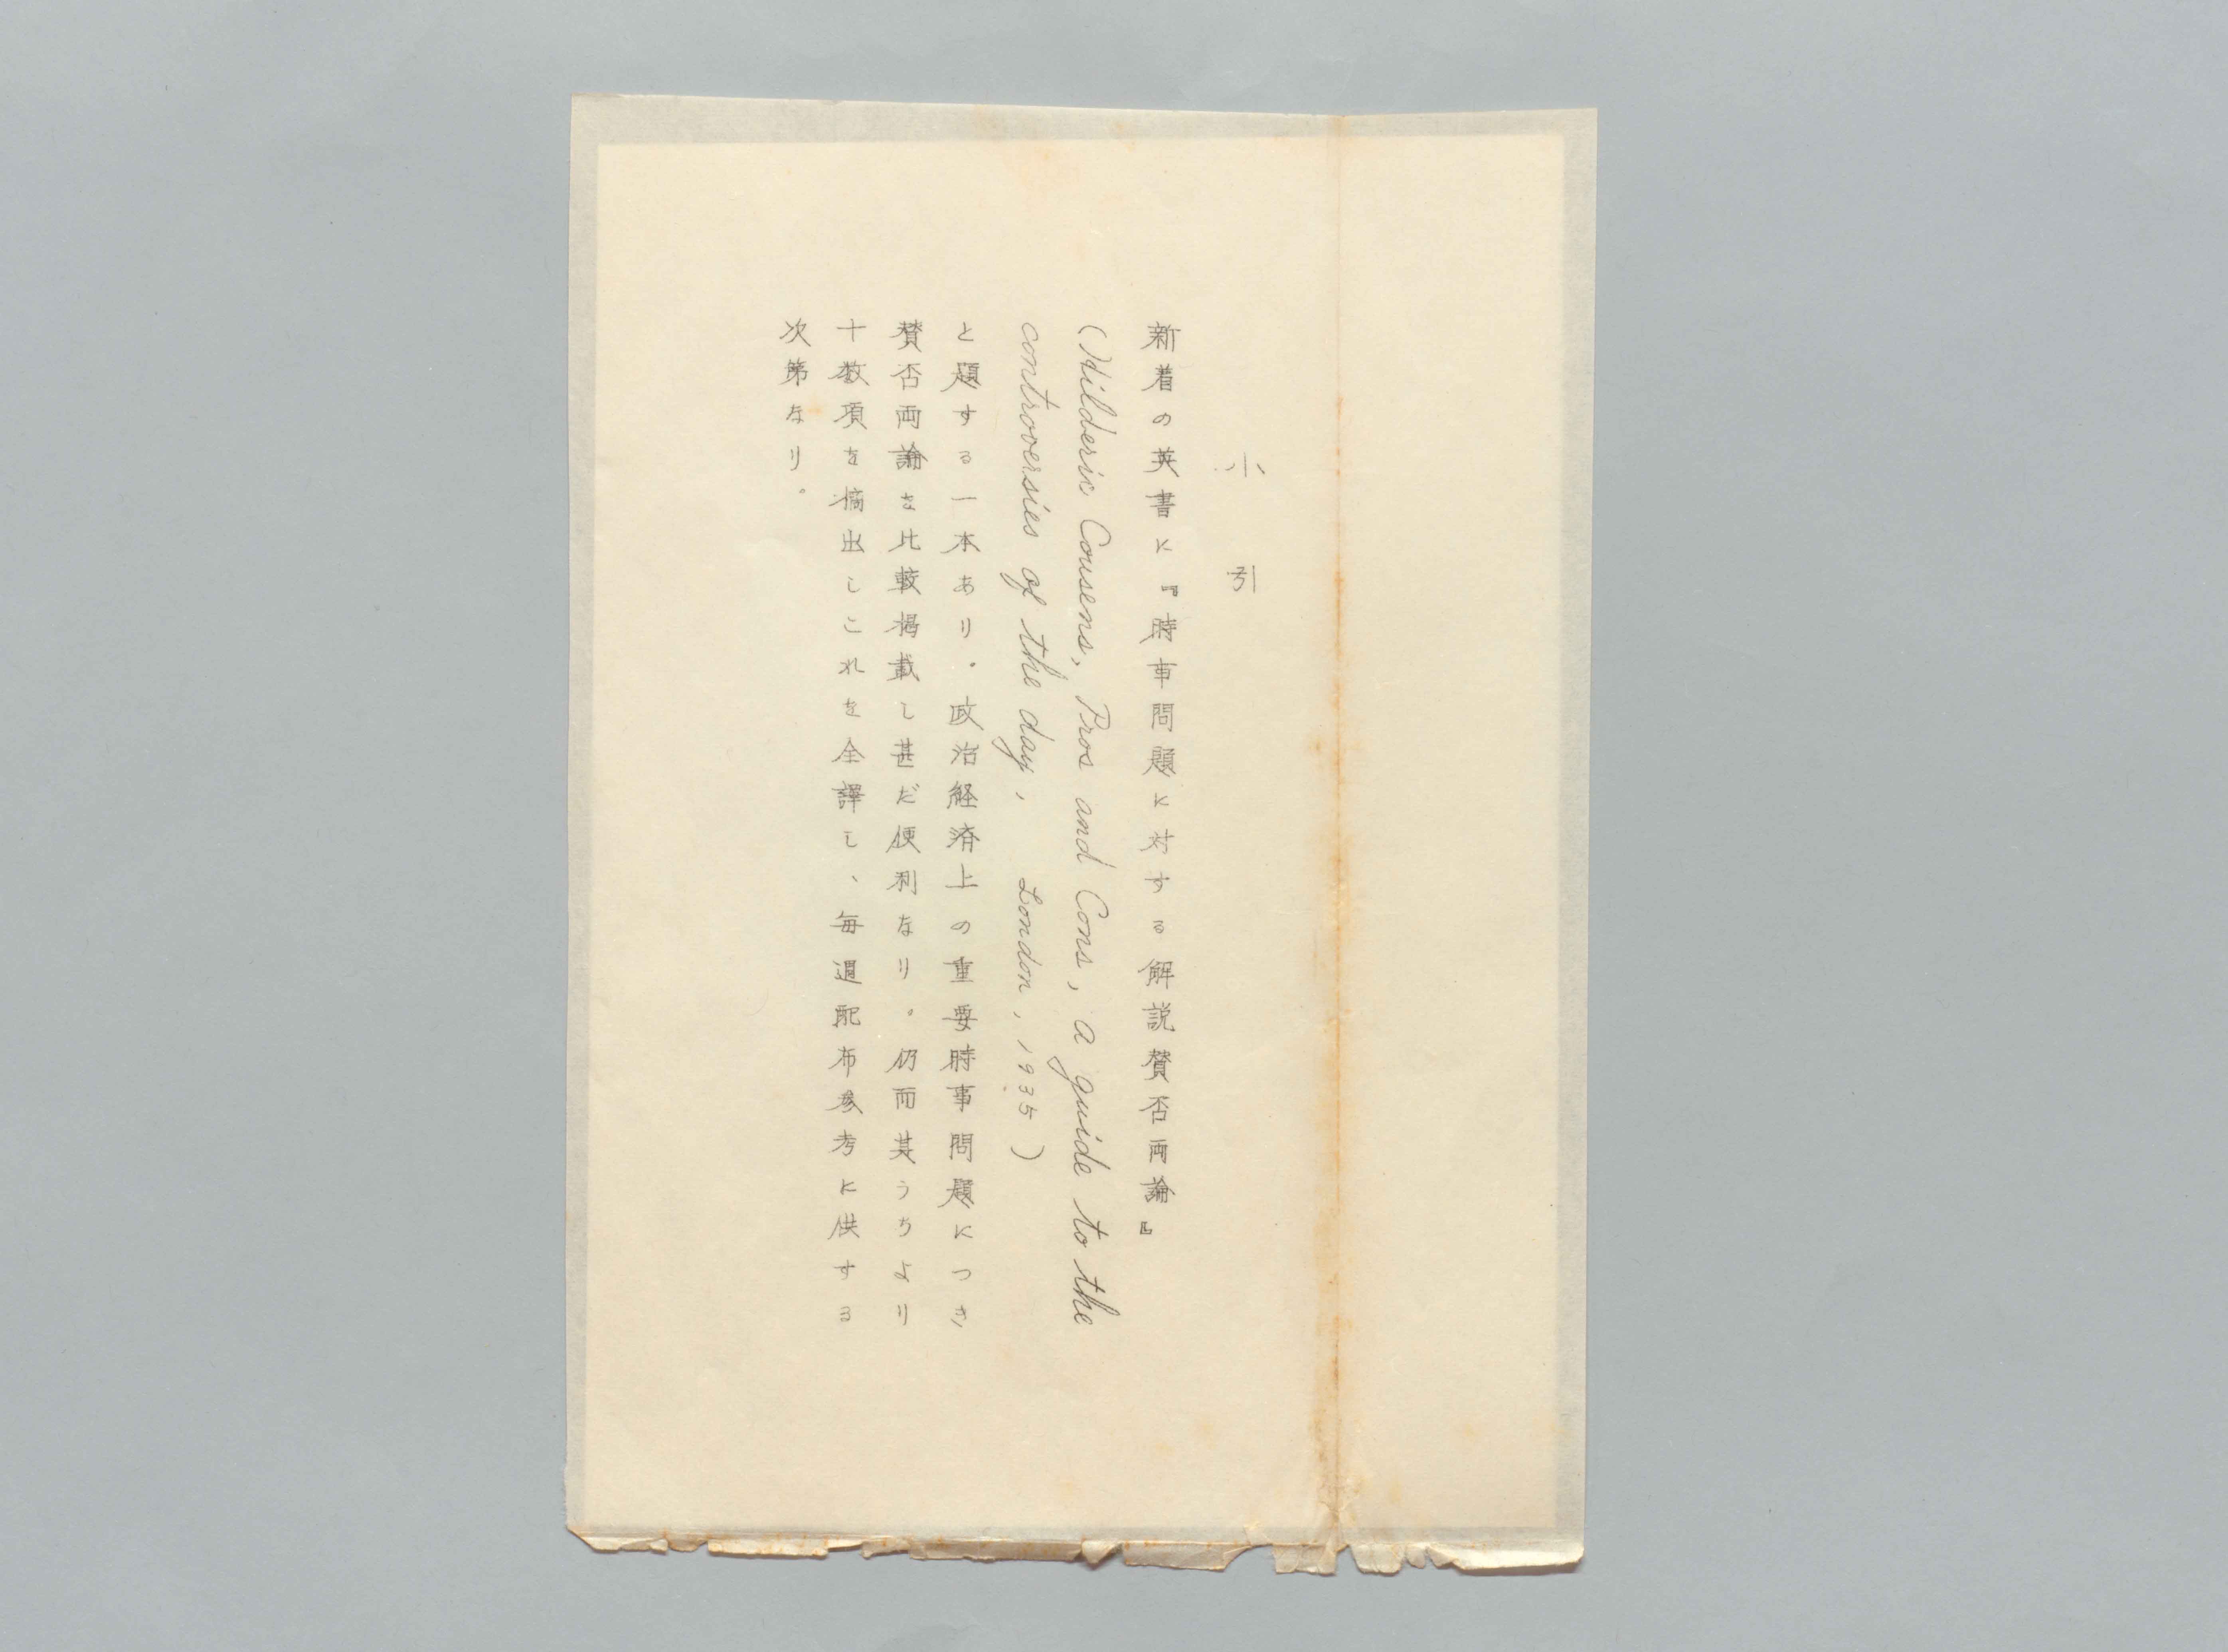 小引
新着の英書に『時事問題に対する解説賛否両論』
(Hilderic Cousens, Pros and Cons, a guide to the
controversies of the day, London, 1935)
と題する一本あり。政治経済上の重要時事問題につき
賛否両論を比較掲載し甚だ便利なり。仍而其うちより
十数項を摘出しこれを全譯し、毎週配布参考に供する
次第なり。